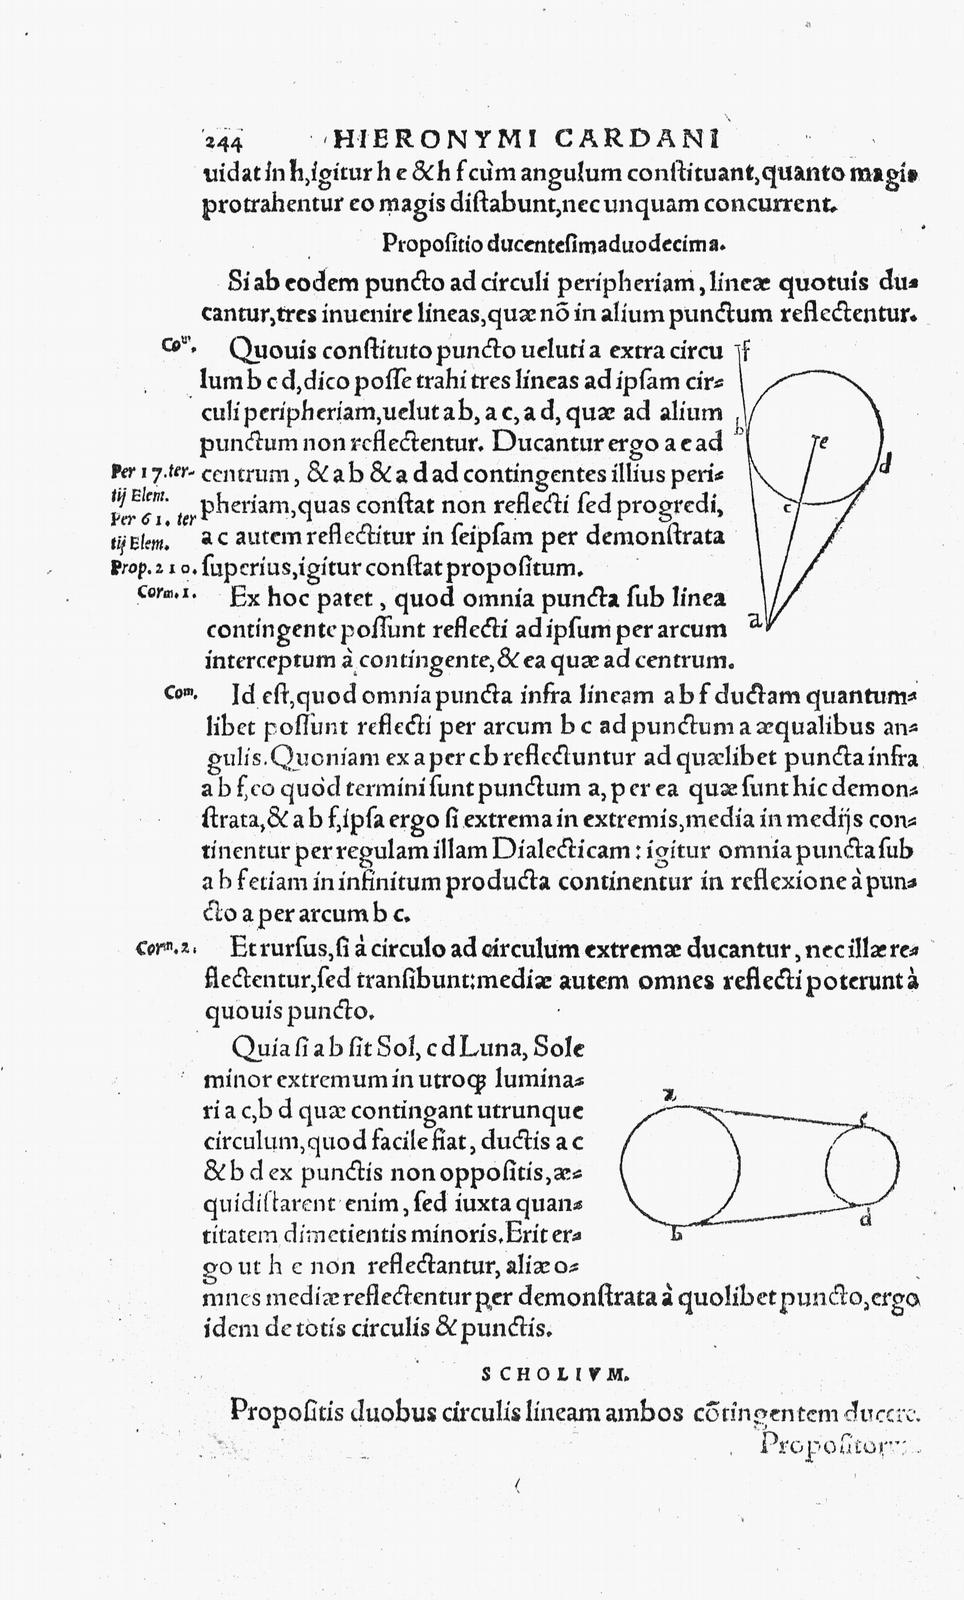 244 HIERONYMI CARDANI
uidat in h, igitur h e & h f cùm angulum constituant, quanto magis
protrahentur eo magis distabunt, nec unquam concurrent.
Propositio ducentesimaduodecima.
Si ab eodem puncto ad circuli peripheriam, lineæ quotuis du-
cantur, tres inuenire lineas, quæ nõ in alium punctum reflectentur.
Co^m.
Quouis constituto puncto ueluti a extra circu
lum b c d, dico posse trahi tres lineas ad ipsam cir-
culi peripheriam, uelut a b, a c, a d, quæ ad alium
punctum non reflectentur. Ducantur ergo a e ad
Per 17. ter-
tij Elem.
centrum, & a b & a d ad contingentes illius peri-
pheriam, quas constat non reflecti sed progredi,
Per 61. ter
tij Elem.
a c autem reflectitur in seipsam per demonstrata
Prop. 210.
superius, igitur constat propositum.
f
b
e
d
c
a
Cor^m. 1.
Ex hoc patet, quod omnia puncta sub linea
contingente possunt reflecti ad ipsum per arcum
interceptum à contingente, & ea quæ ad centrum.
Com.
Id est, quod omnia puncta infra lineam a b f ductam quantum-
libet possunt reflecti per arcum b c ad punctum a æqualibus an-
gulis. Quoniam ex a per c b reflectuntur ad quælibet puncta infra
a b f, eo quòd termini sunt punctum a, per ea quæ sunt hic demon-
strata, & a b f, ipsa ergo si extrema in extremis, media in medijs con-
tinentur per regulam illam Dialecticam: igitur omnia puncta sub
a b f etiam in infinitum producta continentur in reflexione à pun-
cto a per arcum b c.
Cor^m. 2.
Et rursus, si à circulo ad circulum extremæ ducantur, nec illæ re-
flectentur, sed transibunt: mediæ autem omnes reflecti poterunt à
quouis puncto.
Quia si a b sit Sol, c d Luna, Sole
minor extremum in utroq; lumina-
ri a c, b d quæ contingant utrunque
circulum, quod facile fiat, ductis a c
& b d ex punctis non oppositis, æ-
quidistarent enim, sed iuxta quan-
titatem dimetientis minoris. Erit er-
go ut h e non reflectantur, aliæ o-
mnes mediæ reflectentur per demonstrata à quolibet puncto, ergo
idem de totis circulis & punctis.
a
c
b
d
SCHOLIVM.
Propositis duobus circulis lineam ambos cõtingentem ducere.